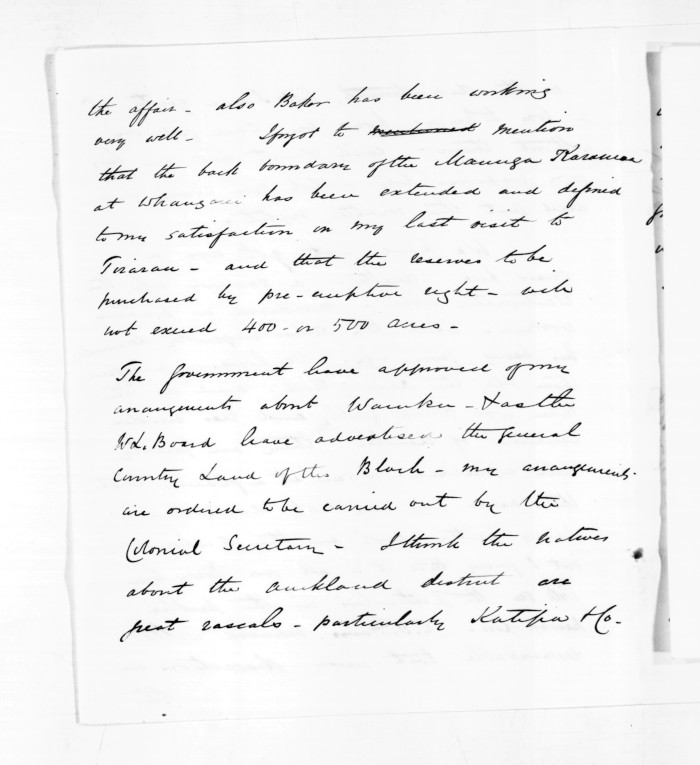 the affair - also Baker has been working
very well - I forgot to mentioned mention
that the back boundary of the Maunga Karamea
at Whangarei has been extended and defined
to my satisfaction on my last visit to
Tirarau - and that the reserves to be
purchased by pre-emptive right - will
not exceed 400 - or 500 acres -
The Government have approved of my
arrangements about Waiuku - & as the
W.L. Board have advertised the general
Country Land of the Block - my arrangements.
are ordered to be carried out by the
Colonial Secretary - I think the natives
about the Auckland district are
great rascals - particularly Katipa & Co -